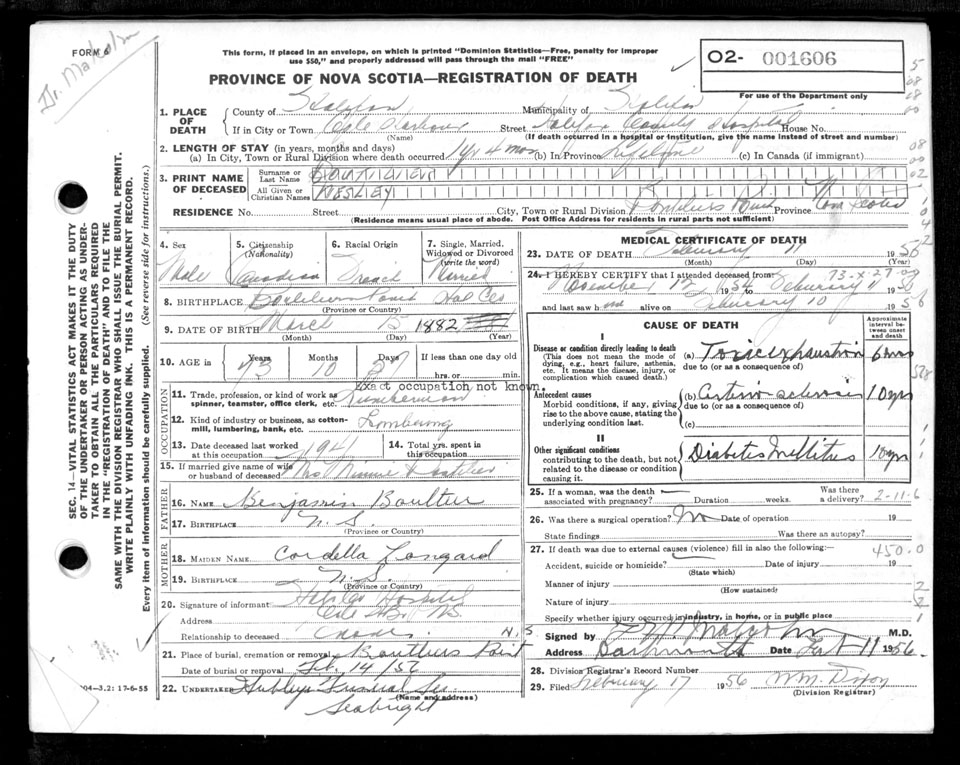 FORM 6
Dr. Malcolm
This form, if placed in an envelope, on which is printed "Dominion Statistics—Free, penalty for improper
use $50," and properly addressed will pass through the mail "FREE"
PROVINCE OF NOVA SCOTIA—REGISTRATION OF DEATH
02- 001606
For use of the Department only
1. PLACE OF DEATH
County of Halifax Municipality of Halifax
If in City or Town Cole Harbour Street Halifax County Hospital House No.
(Name) (If death occurred in a hospital or institution, give the name instead of street and number)
2. LENGTH OF STAY (in years, months and days)
(a) In City, Town or Rural Division where death occurred 1 yr 4 mos (b) In Province Lifetime (c) In Canada (if immigrant)
3. PRINT NAME OF DECEASED
Surname or Last Name BOUTILIER
All Given or Christian Names WESLEY
RESIDENCE No. Street City, Town or Rural Division Boutiliers Point Province Nova Scotia
(Residence means usual place of abode. Post Office Address for residents in rural parts not sufficient)
4. Sex Male
5. Citizenship (Nationality) Canadian
6. Racial Origin French
7. Single, Married, Widowed or Divorced (write the word) Married
8. BIRTHPLACE Boutiliers Point Hal Co
(Province or Country)
9. DATE OF BIRTH March 15 1882
(Month) (Day) (Year)
10. AGE in Years 73 Months 10 Days 27 If less than one day old
hrs. or min.
Exact occupation not known.
OCCUPATION
11. Trade, profession, or kind of work as spinner, teamster, office clerk, etc. Lumberman
12. Kind of industry or business, as cotton-mill, lumbering, bank, etc. Lumbering
13. Date deceased last worked at this occupation 1941
14. Total yrs. spent in this occupation
15. If married give name of wife or husband of deceased Mrs Minnie Boutilier
FATHER
16. NAME Benjamin Boutilier
17. BIRTHPLACE N. S.
(Province or Country)
MOTHER
18. MAIDEN NAME Cordella Longard
19. BIRTHPLACE N. S.
(Province or Country)
20. Signature of informant Hospital
Address Cole Hbr. N.S.
Relationship to deceased
21. Place of burial, cremation or removal Boutiliers Point N.S
Date of burial or removal Feb. 14 '56
22. UNDERTAKER Hubley's Funeral Ser.
Seabright
004—3.2: 17-6-55
MEDICAL CERTIFICATE OF DEATH
23. DATE OF DEATH February 11 1956
(Month) (Day) (Year)
73-x-27-00
24. I HEREBY CERTIFY that I attended deceased from
November 12 1954 to February 11 1956
and last saw him alive on February 10 1956
CAUSE OF DEATH
Approximate interval between onset and death
I
Disease or condition directly leading to death
(This does not mean the mode of dying, e.g., heart failure, asthenia, etc. It means the disease, injury, or complication which caused death.)
(a) Toxic exhaustion 6 hrs
due to (or as a consequence of)
Antecedent causes
Morbid conditions, if any, giving rise to the above cause, stating the underlying condition last.
(b) Arterio sclerosis 10 yrs
due to (or as a consequence of)
(c)
II
Other significant conditions
contributing to the death, but not related to the disease or condition causing it.
Diabetes Mellitus 10 yrs
25. If a woman, was the death associated with pregnancy? Duration weeks. Was there a delivery? 2-11-6
26. Was there a surgical operation? No Date of operation 19
State findings Was there an autopsy?
27. If death was due to external causes (violence) fill in also the following:— 450.0
Accident, suicide or homicide? Date of injury 19
(State which)
Manner of injury
(How sustained)
Nature of injury
Specify whether injury occurred in industry, in home, or in public place
Signed by Malcolm M.D.
Address Dartmouth Date Feb 11 1956.
28. Division Registrar's Record Number
29. Filed February 17 1956 Wm. Dixon
(Division Registrar)
SEC. 14—VITAL STATISTICS ACT MAKES IT THE DUTY
OF THE UNDERTAKER OR PERSON ACTING AS UNDER-
TAKER TO OBTAIN ALL THE PARTICULARS REQUIRED
IN THE "REGISTRATION OF DEATH" AND TO FILE THE
SAME WITH THE DIVISION REGISTRAR WHO SHALL ISSUE THE BURIAL PERMIT.
WRITE PLAINLY WITH UNFADING INK. THIS IS A PERMANENT RECORD.
Every item of information should be carefully supplied. (See reverse side for instructions.)